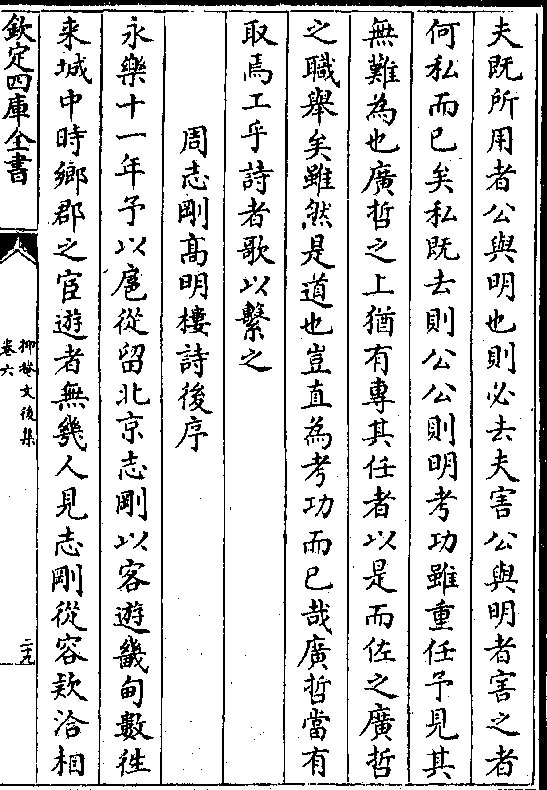 夫既所用者公與明也則必去夫害公與明者害之者
何私而已矣私既去則公公則明考功雖重任予見其
無難為也廣哲之上猶有專其任者以是而佐之廣哲
之職舉矣雖然是道也豈直為考功而已哉廣哲當有
取焉工乎詩者歌以繫之
周志剛髙明樓詩後序
永樂十一年予以扈從留北京志剛以客遊畿甸數徃
来城中時鄉郡之宦遊者無幾人見志剛從容欵洽相
欽定四庫全書
抑菴文後集
卷六
二十九